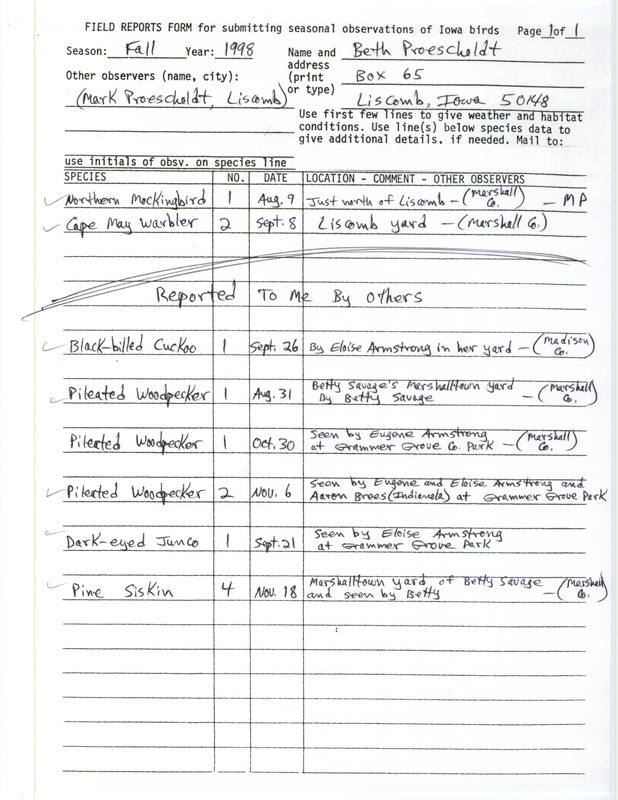 FIELD REPORTS FORM for submitting seasonal observations of Iowa birds Page 1 of 1
Season: Fall Year: 1998 Name and address (print or type) Beth Proescholdt
Box 65
Liscomb, Iowa 50148
Other observers (name, city):
(Mark Proescholdt, Liscomb)
Use first few lines to give weather and habitat
conditions. Use line(s) below species data to
give additional details, if needed. Mail to:
use initials of obsv. on species line
SPECIES NO. DATE LOCATION - COMMENT - OTHER OBSERVERS
Northern Mockingbird 1 Aug. 9 Just north of Liscomb - (Marshall Co.) - MP
Cape May Warbler 2 Sept. 8 Liscomb yard - (Marshall Co.)
Reported To Me By Others
Black-billed Cuckoo 1 Sept. 26 By Eloise Armstrong in her yard - (Madison Co.)
Pileated Woodpecker 1 Aug. 31 Betty Savage's Marshalltown yard
By Betty Savage - (Marshall Co.)
Pileated Woodpecker 1 Oct. 30 Seen by Eugene Armstrong
at Grammer Grove Co. Park - (Marshall Co.)
Pileated Woodpecker 2 Nov. 6 Seen by Eugene and Eloise Armstrong and
Aaron Brees (Indianola) at Grammer Grove Park
Dark-eyed Junco 1 Sept. 21 Seen by Eloise Armstrong
at Grammer Grove Park
Pine Siskin 4 Nov. 18 Marshalltown yard of Betty Savage
and seen by Betty - (Marshall Co.)